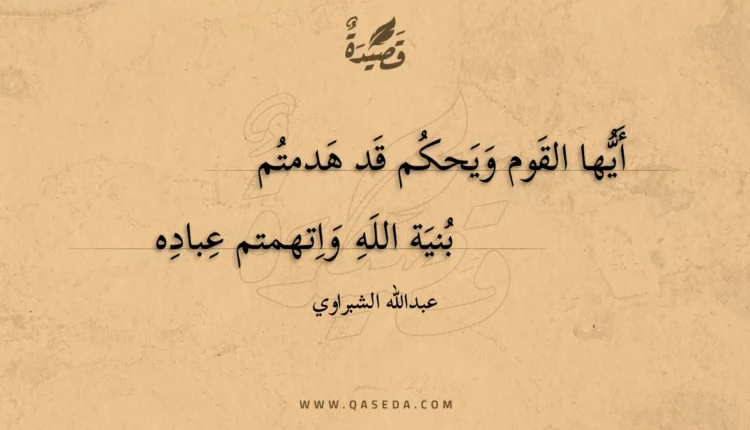 قَصِيدَةٌ
أَيُّها القَوم وَيَحكُم قَد هَدمتُم
بُنيَة اللَهِ وَاِتهمتم عِبادِه
عبدالله الشبراوي
WWW.QASEDA.COM